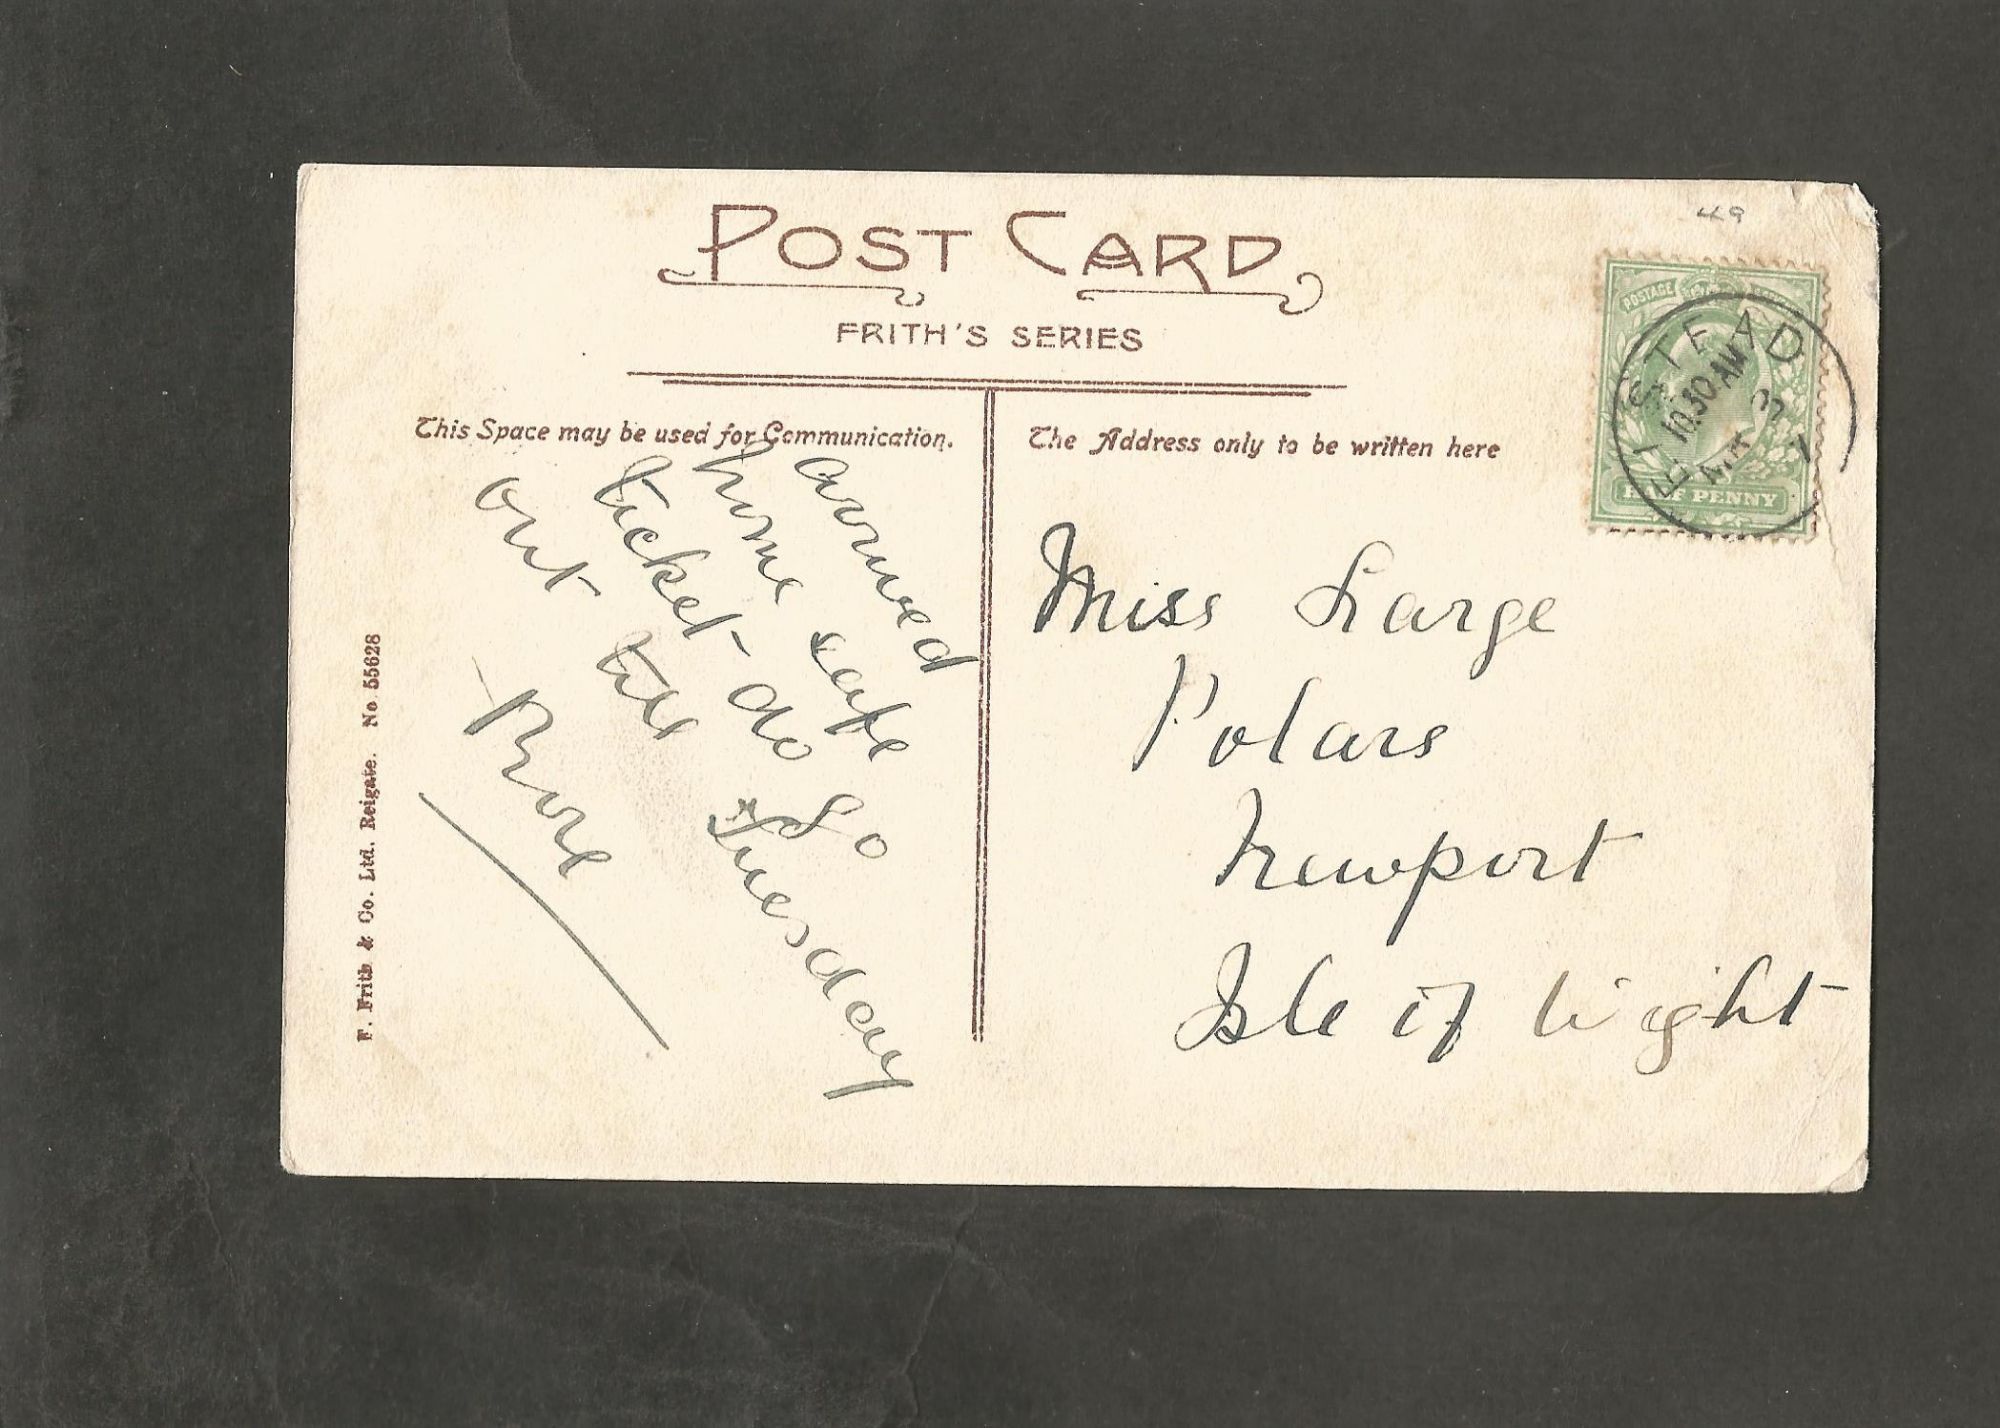 49
POST CARD
FRITH'S SERIES
POSTAGE
HALF PENNY
ELSTEAD
10.30 AM
3
7
This Space may be used for Communication.
The Address only to be written here
arrived
home safe
ticket do so
out till Tuesday
Rose
Miss Large
Polars
Newport
Isle of Wight
F. Frith & Co. Ltd. Reigate. No. 55628